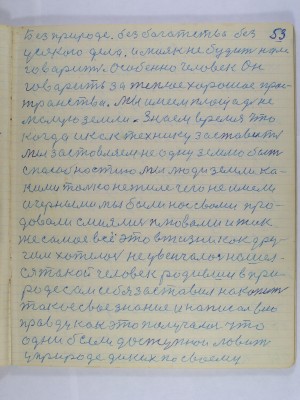 53
без природе. без богатства без
усякого дела. и маяк не будит нам
говорить. Особенно человек Он
говорить за теплое хорошое прос
транства. Мы имеем площадь не
малую земли. Знаем время что
когда и как технику заставить
Мы заставляем не одну землю быть
способностию Мы люди земли ка
ними только не
и черными мы были по своему про
довали смиялись плювали и так
же самое всё это в жизни как дру
гим хотелось не увенчалось нашел
ся такой человек родивши в при
роде сам себя заставил накопить
такое свое знание и написал (мо
правду как это получалось что
одни были доступной ловить
у природе диких по своему